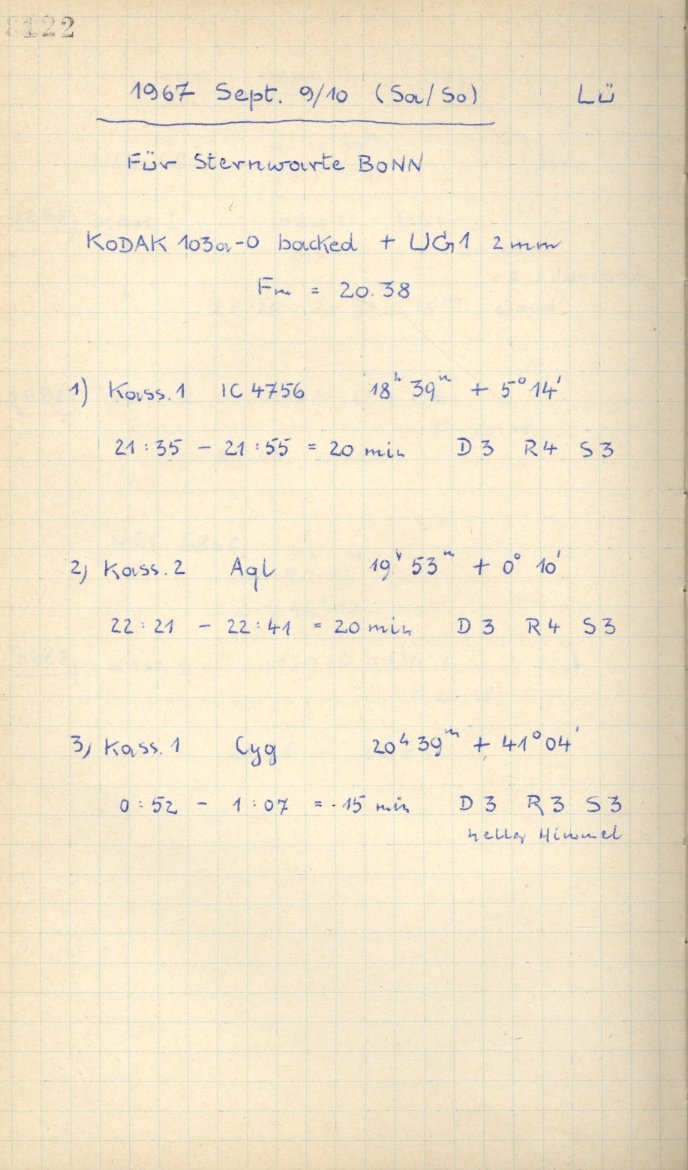 122
1967 Sept. 9/10 (Sa/So) Lü
Für Sternwarte BONN
KODAK 103a-O backed + UG1 2mm
Fm = 20.38
1) Kass. 1 IC 4756 18ʰ 39ᵐ + 5° 14'
21:35 - 21:55 = 20 min D3 R4 S3
2) Kass. 2 Aql 19ʰ 53ᵐ + 0° 10'
22:21 - 22:41 = 20 min D3 R4 S3
3) Kass. 1 Cyg 20ʰ 39ᵐ + 41° 04'
0:52 - 1:07 = 15 min D3 R3 S3
heller Himmel